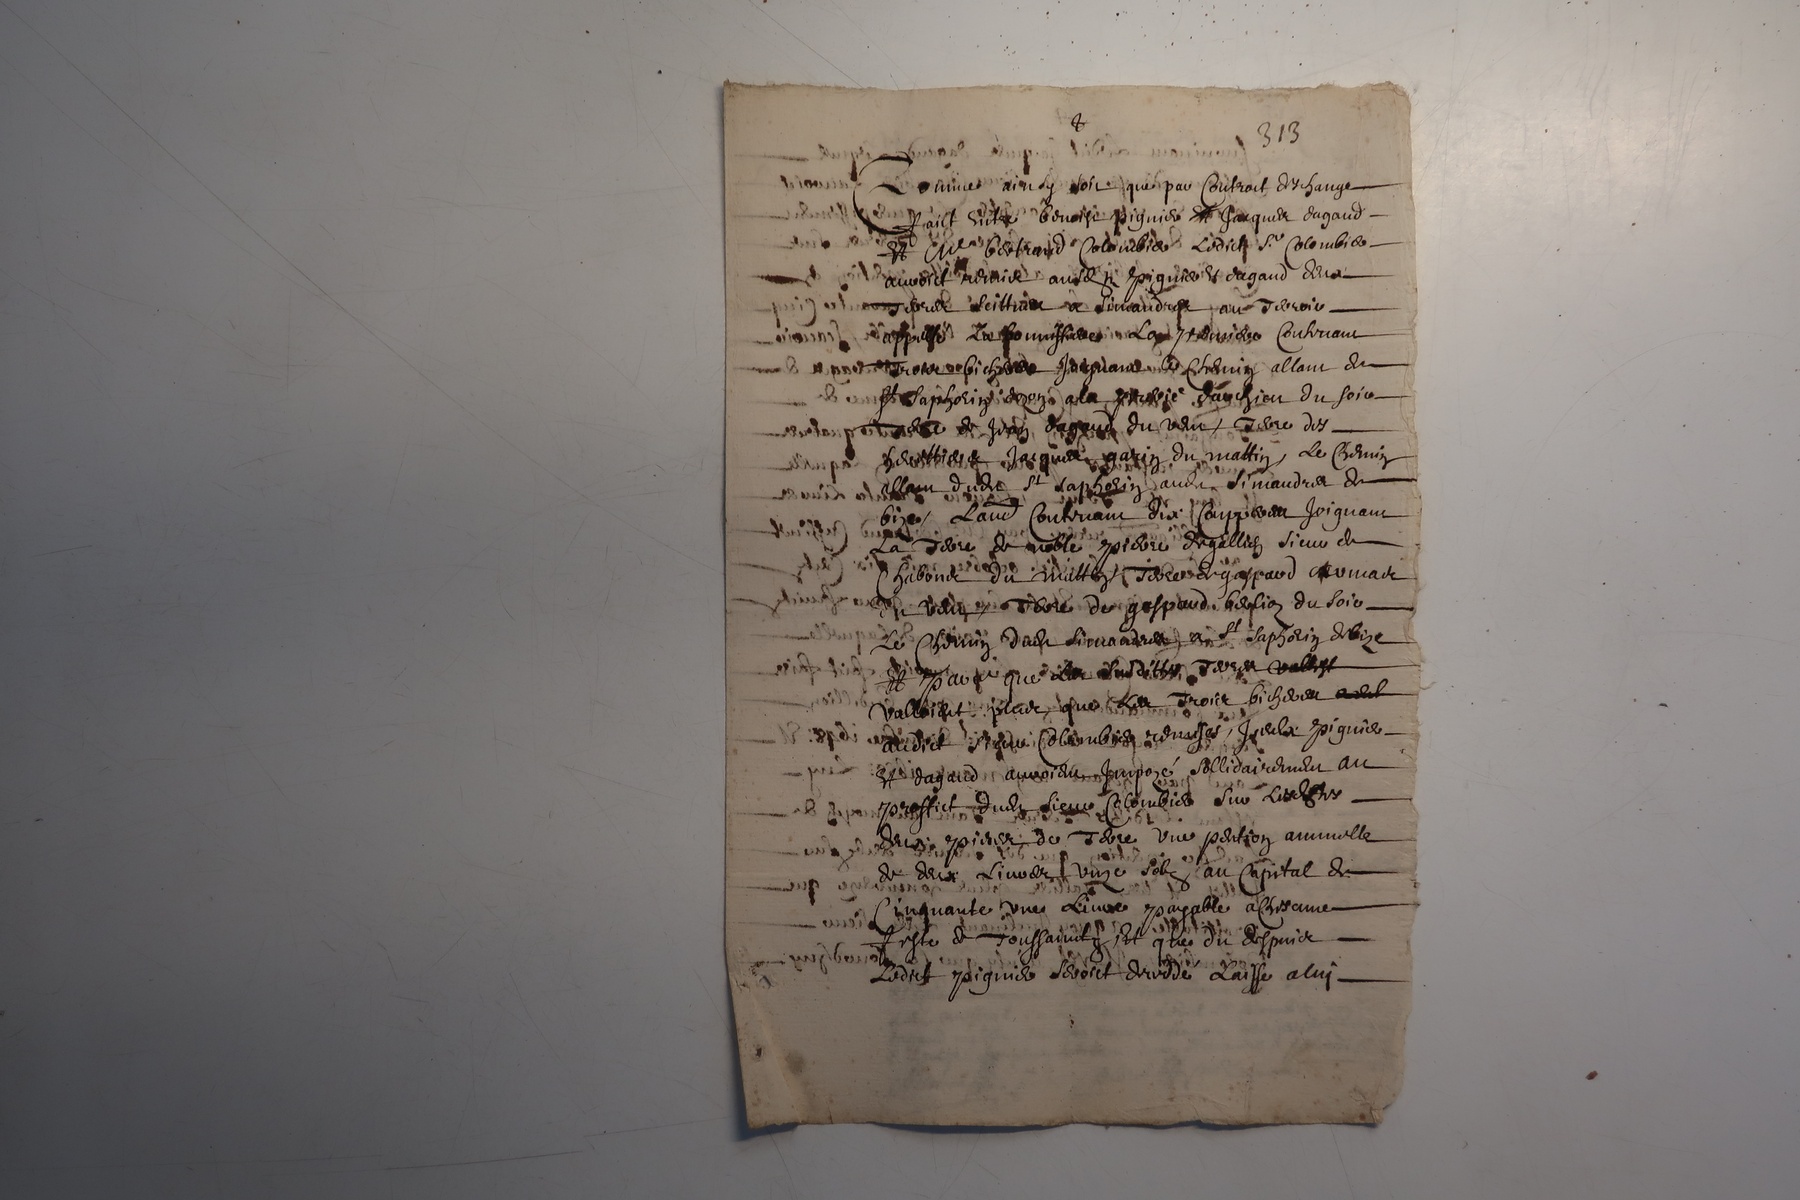 313
Comme ainsy soit que par Contract deschange
Faict entre benoist pignier et Jacques dagand
et Me bertrand Colombier Ledict Sr Colombier
auroict remict ausdts pignier et dagand deux
Terres scittuées a Simandres au Terroir
appellé La premiere Contenant
Trois bicherées Joignant Le Chemin allant de
St Saphorin dozon a la du soir
Terre de Jean dagand du vent, Terre des
heritiers Jacques garin du mattin, Le Chemin
allant dudt St Saphorin audt Simandres de
bize, Laud Contenant dix Couppées Joignant
La Terre de noble pierre degallien sieur de
Chabons du mattin, Terre de gaspard
du vent, Terre de gaspard du soir
Le Chemin dudt Simandres a St Saphorin de bize
et parce que Les susdittes Terres
valloient plus que Les Trois bicherées
audict sieur Colombier remises, Iceux pignier
et dagand auroient Imposé sollidairement au
proffict dudt sieur Colombier sur Lesdttes
deux pieces de Terre une pention annuelle
de deux Livres unze solz au Capital de
Cinquante une Livre payable a Chescune
Feste de Toussaintz, Et que du despuis
Ledict pignier seroict decedé Laissé a luy